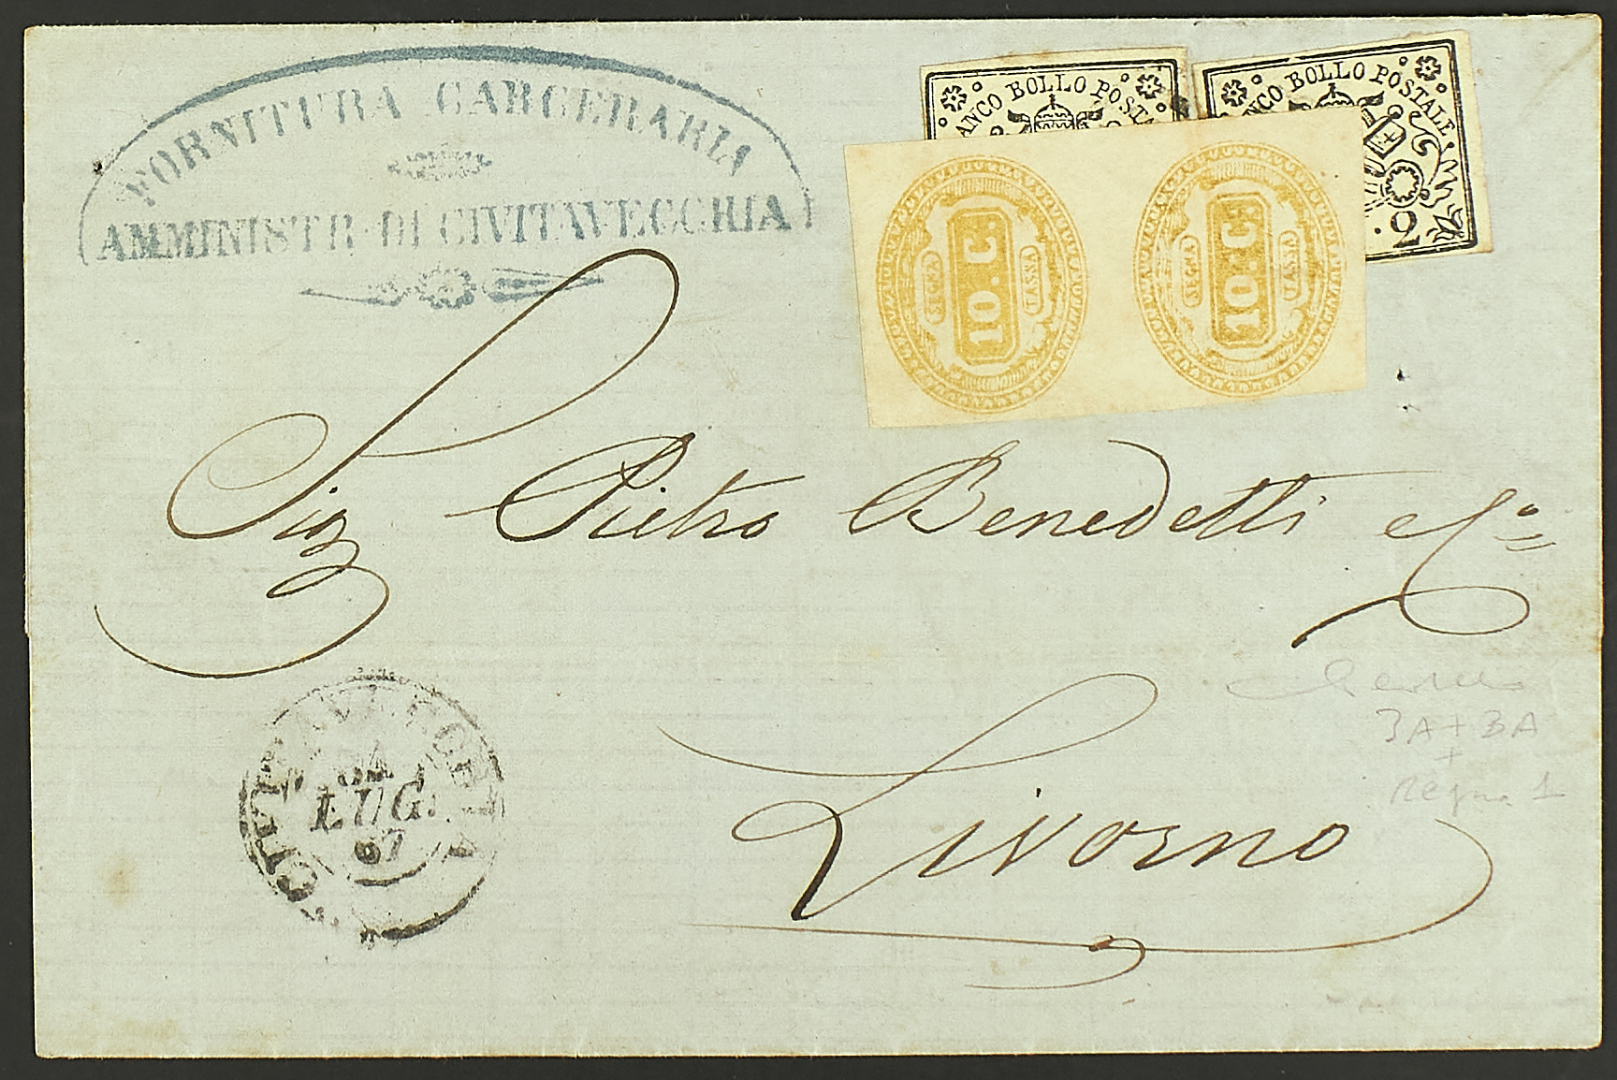 FORNITURA CARCERARIA
AMMINISTR. DI CIVITAVECCHIA
FRANCO BOLLO POSTALE
FRANCO BOLLO POSTALE
2
SEGNA
10. C.
TASSA
SEGNA
10. C.
TASSA
Sig Pietro Benedetti e Co
Livorno
CIVITAVECCHIA
LUG.
67
3A + 3A
+
Segna 1